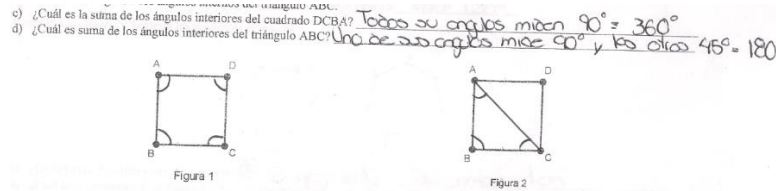 ABC.
c) ¿Cuál es la suma de los ángulos interiores del cuadrado DCBA? Todos su angulos miden 90° = 360°
d) ¿Cuál es suma de los ángulos interiores del triángulo ABC? Uno de sus angulos mide 90° y los otros 45° = 180
A D
B C
Figura 1
A D
B C
Figura 2